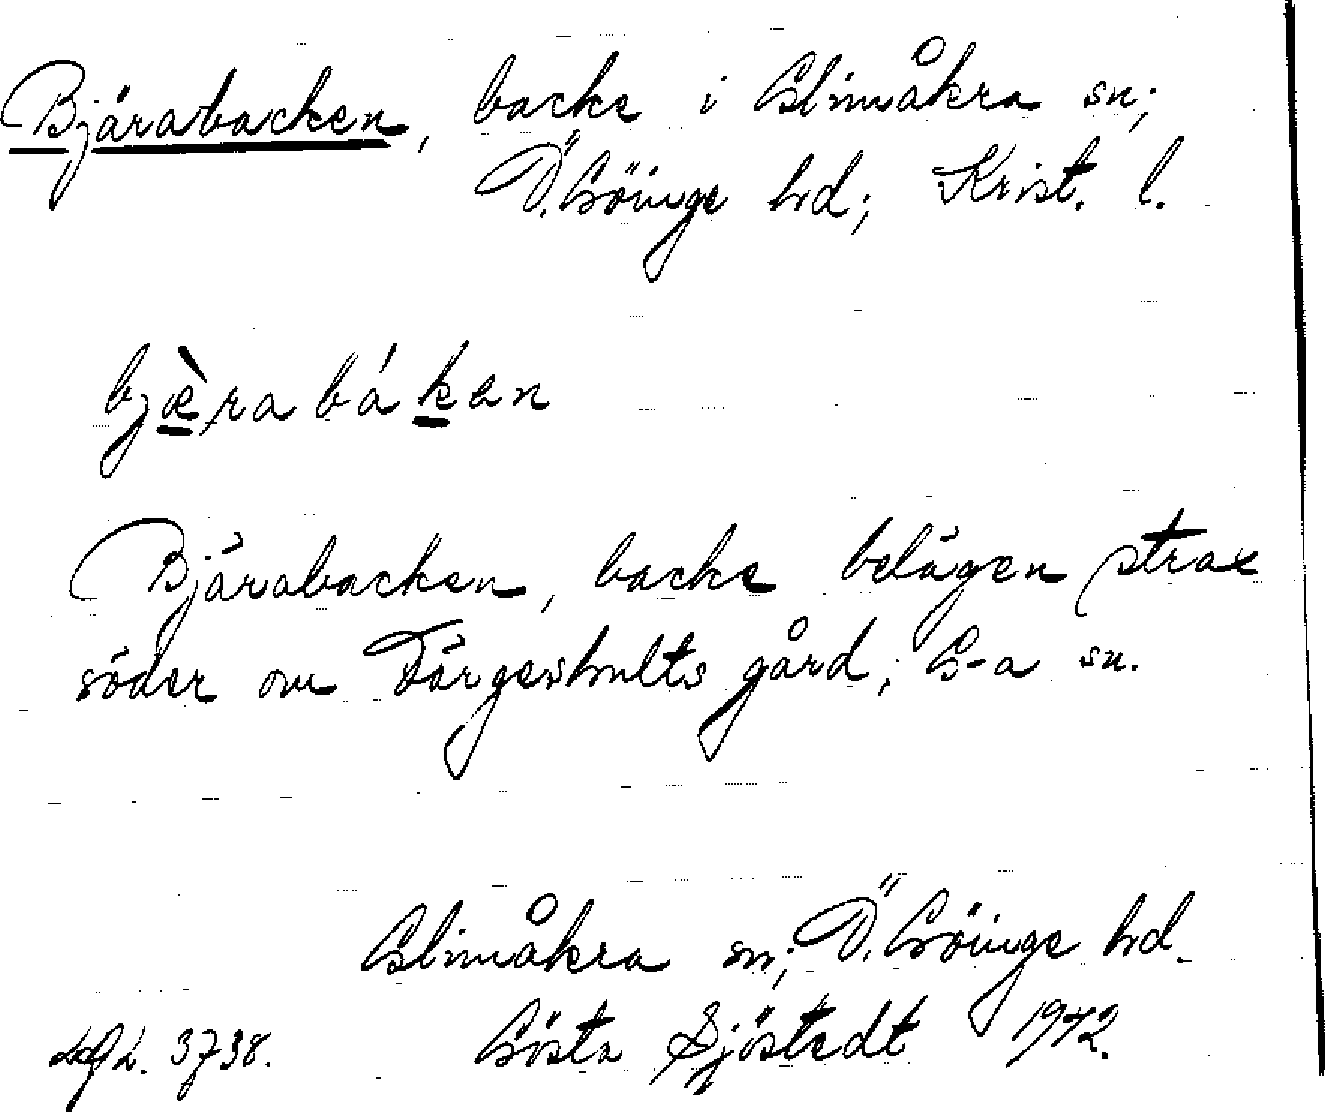 Bjärabacken, backe i Glimåkra sn;
Ö. Göinge hd; Krist. l.
bjæ̀rabáken
Bjärabacken, backe belägen strax
söder om Färgeshults gård; G-a sn.
Glimåkra sn; Ö. Göinge hd.
3738. Gösta Sjöstedt 1942.